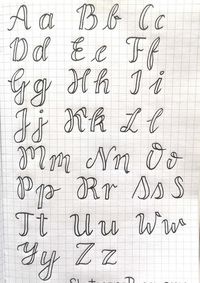 Aa Bb Cc
Dd Ee Ff
Gg Hh Ii
Jj Kk Ll
Mm Nn Oo
Pp Rr Ss S
Tt Uu Ww
Yy Zz